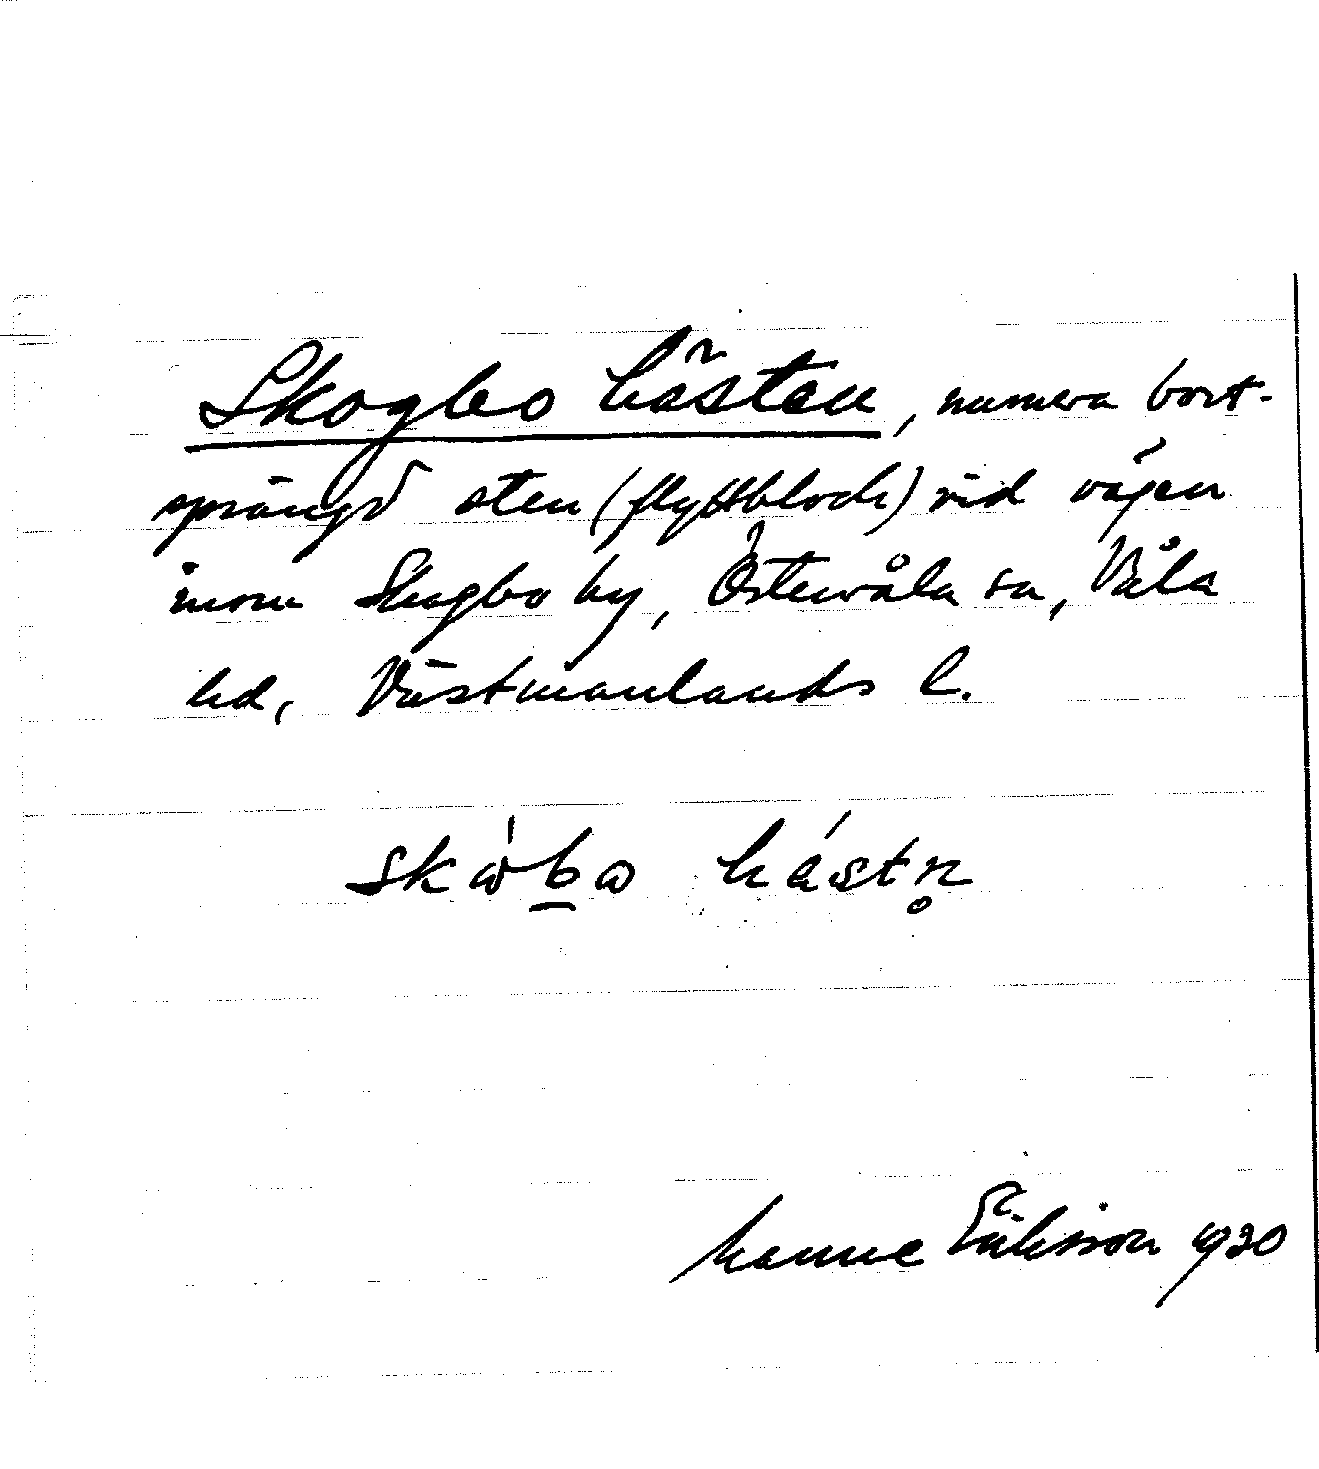 Skogbo hästen, numera bort-
sprängd sten (flyttblock) vid vägen
inom Skogbo by, Östervåla sn, Våla
hd, Västmanlands l.
skὼbω hástn̥
Manne Eriksson 1930